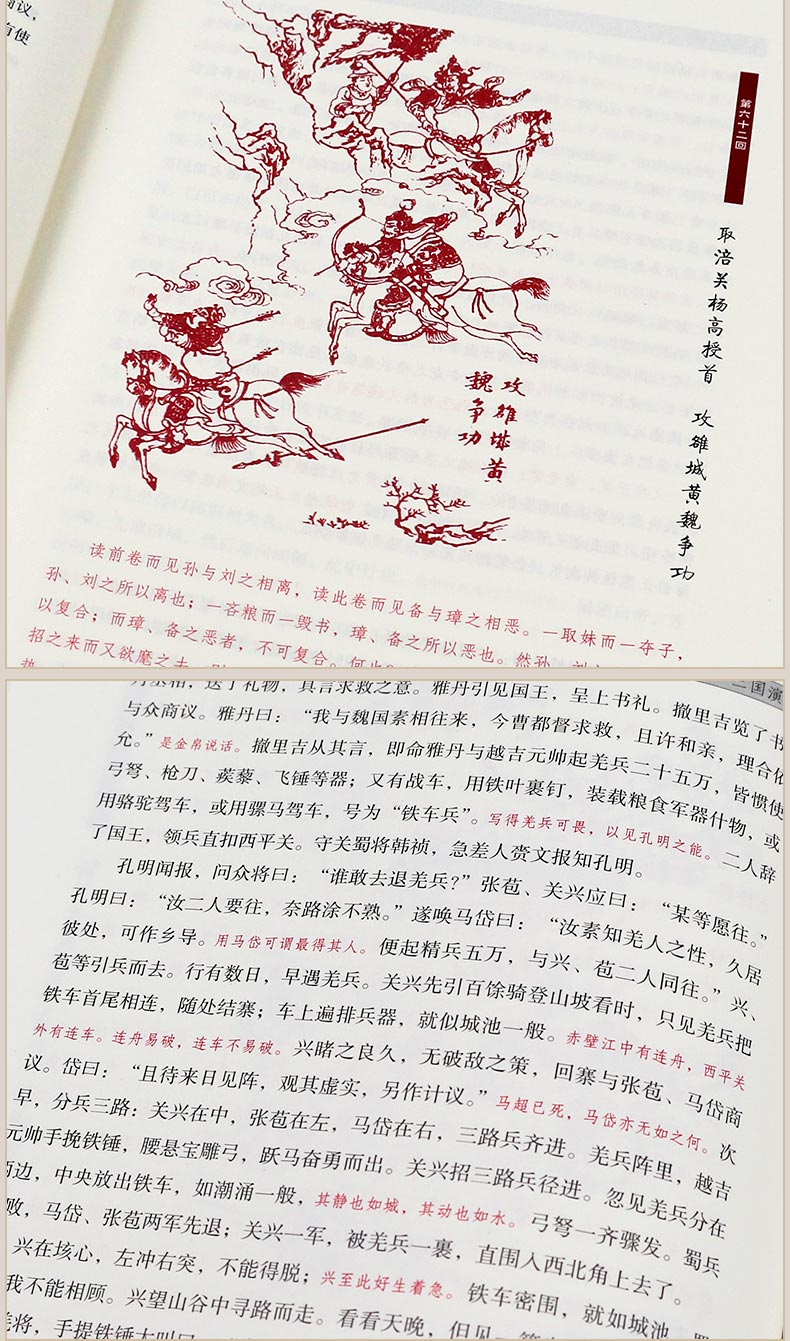 有使
第六十二回
取涪关杨高授首 攻雒城黄魏争功
攻雒城黄
魏争功
读前卷而见孙与刘之相离，读此卷而见备与璋之相恶。一取妹而一夺子，
孙、刘之所以离也；一吝粮而一毁书，璋、备之所以恶也。然孙、刘
以复合；而璋、备之恶者，不可复合。何也
招之来而又欲麾之去
国演
丞相，送了礼物，具言求救之意。雅丹引见国王，呈上书礼。撤里吉览了书
与众商议。雅丹曰：“我与魏国素相往来，今曹都督求救，且许和亲，理合依
允。”是金帛说话。撤里吉从其言，即命雅丹与越吉元帅起羌兵二十五万，皆惯使
弓弩、枪刀、蒺藜、飞锤等器；又有战车，用铁叶裹钉，装载粮食军器什物，或
用骆驼驾车，或用骡马驾车，号为“铁车兵”。写得羌兵可畏，以见孔明之能。二人辞
了国王，领兵直扣西平关。守关蜀将韩祯，急差人赍文报知孔明。
孔明闻报，问众将曰：“谁敢去退羌兵？”张苞、关兴应曰：“某等愿往。”
孔明曰：“汝二人要往，奈路涂不熟。”遂唤马岱曰：“汝素知羌人之性，久居
彼处，可作乡导。用马岱可谓最得其人。便起精兵五万，与兴、苞二人同往。”兴、
苞等引兵而去。行有数日，早遇羌兵。关兴先引百馀骑登山坡看时，只见羌兵把
铁车首尾相连，随处结寨；车上遍排兵器，就似城池一般。赤壁江中有连舟，西平关
外有连车。连舟易破，连车不易破。兴睹之良久，无破敌之策，回寨与张苞、马岱商
议。岱曰：“且待来日见阵，观其虚实，另作计议。”马超已死，马岱亦无如之何。次
早，分兵三路：关兴在中，张苞在左，马岱在右，三路兵齐进。羌兵阵里，越吉
元帅手挽铁锤，腰悬宝雕弓，跃马奋勇而出。关兴招三路兵径进。忽见羌兵分在
两边，中央放出铁车，如潮涌一般，其静也如城，其动也如水。弓弩一齐骤发。蜀兵
败，马岱、张苞两军先退；关兴一军，被羌兵一裹，直围入西北角上去了。
兴在垓心，左冲右突，不能得脱；兴至此好生着急。铁车密围，就如城池
我不能相顾。兴望山谷中寻路而走。看看天晚，但见一簇
羌将，手提铁锤大叫曰